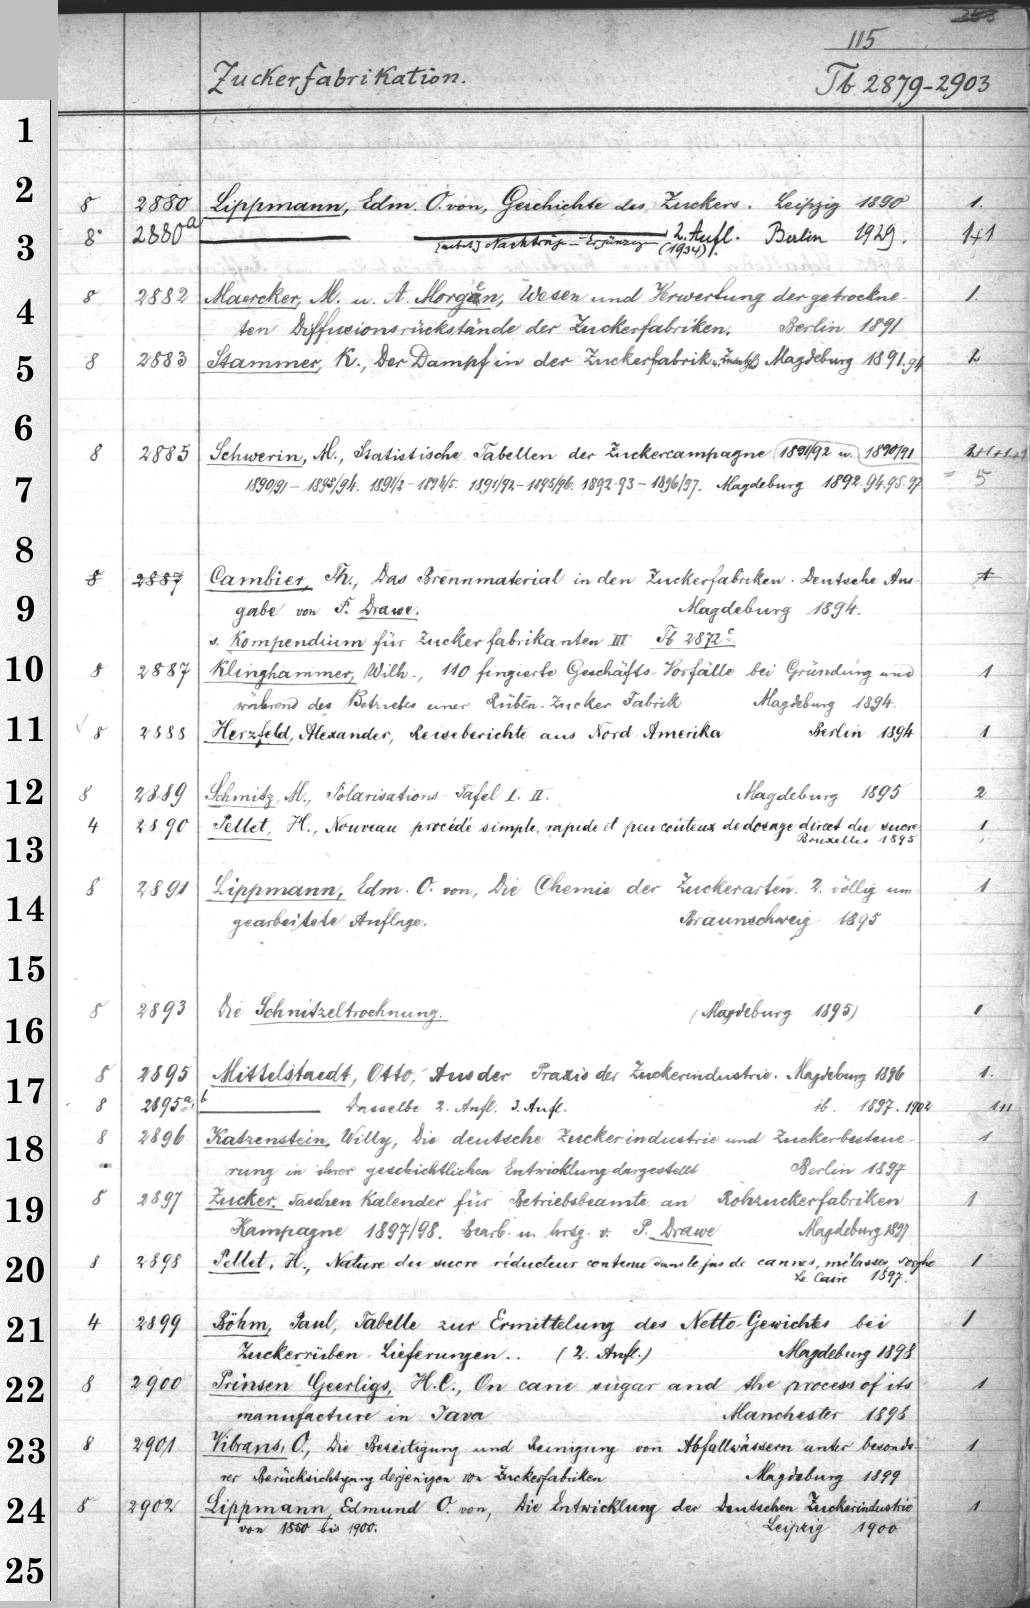 115
Zuckerfabrikation.
Tb 2879-2903
1
2
8 2880 Lippmann, Edm. O. von, Geschichte des Zuckers. Leipzig 1890 1.
8° 2880a 2. Aufl. Berlin 1929. 1+1
3
[nebst] Nachträg. Ergänzg (1934).
8 2882 Maercker, M. u. A. Morgen, Wesen und Verwertung der getrockne-
1
4
ten Diffusionsrückstände der Zuckerfabriken. Berlin 1891
8 2883 Stammer, K., Der Dampf in der Zuckerfabrik Magdeburg 1891.94 2
5
6
8 2885 Schwerin, M., Statistische Tabellen der Zuckercampagne (1891/92 u. 1890/91
7
1890/91 - 1893/94. 1891/2 - 1894/5. 1891/92 - 1895/96. 1892-93 - 1896/97. Magdeburg 1892.94.95.97 = 5
8
8 2887 Cambier, Th., Das Brennmaterial in den Zuckerfabriken. Deutsche Aus- 1
9
gabe von F. Drawe. Magdeburg 1894.
s. Kompendium für Zuckerfabrikanten III Tb 2872c
10
8 2887 Klinghammer, Wilh., 110 fingierte Geschäfts-Vorfälle bei Gründung und 1
während des Betriebes einer Rüben-Zucker Fabrik Magdeburg 1894.
11
8 2888 Herzfeld, Alexander, Reiseberichte aus Nord Amerika Berlin 1894 1
12
8 2889 Schmitz, M., Polarisations-Tafel I. II. Magdeburg 1895 2
4 2890 Pellet, H., Nouveau procédé simple, rapide et peu coûteux de dosage direct du sucre 1
13
Bruxelles 1895
8 2891 Lippmann, Edm. O. von, Die Chemie der Zuckerarten. 2. völlig um- 1
14
gearbeitete Auflage. Braunschweig 1895
15
8 2893 Die Schnitzeltrocknung. (Magdeburg 1895) 1
16
8 2895 Mittelstaedt, Otto, Aus der Praxis der Zuckerindustrie. Magdeburg 1896 1.
17
8 2895a.b Dasselbe 2. Aufl. 3. Aufl. ib. 1897. 1902 1+1
18
8 2896 Katzenstein, Willy, Die deutsche Zuckerindustrie und Zuckerbesteue- 1
rung in ihrer geschichtlichen Entwicklung dargestellt Berlin 1897
19
8 2897 Zucker. Taschen Kalender für Betriebsbeamte an Rohzuckerfabriken 1
Kampagne 1897/98. Bearb. u. hrsg. v. P. Drawe Magdeburg 1897
20
8 2898 Pellet, H., Nature du sucre réducteur contenu dans le jus de cannes, mélasses, sorgho 1
Le Caire 1897.
21
4 2899 Böhm, Paul, Tabelle zur Ermittelung des Netto-Gewichts bei 1
Zuckerrüben-Lieferungen.. (2. Aufl.) Magdeburg 1898
22
8 2900 Prinsen Geerligs, H.C., On cane sugar and the process of its 1
manufacture in Java Manchester 1898
23
8 2901 Vibrans, O., Die Beseitigung und Reinigung von Abfallwässern unter besonde- 1
rer Berücksichtigung derjenigen von Zuckerfabriken Magdeburg 1899
24
8 2902 Lippmann, Edmund O. von, Die Entwicklung der Deutschen Zuckerindustrie 1
von 1850 bis 1900. Leipzig 1900
25